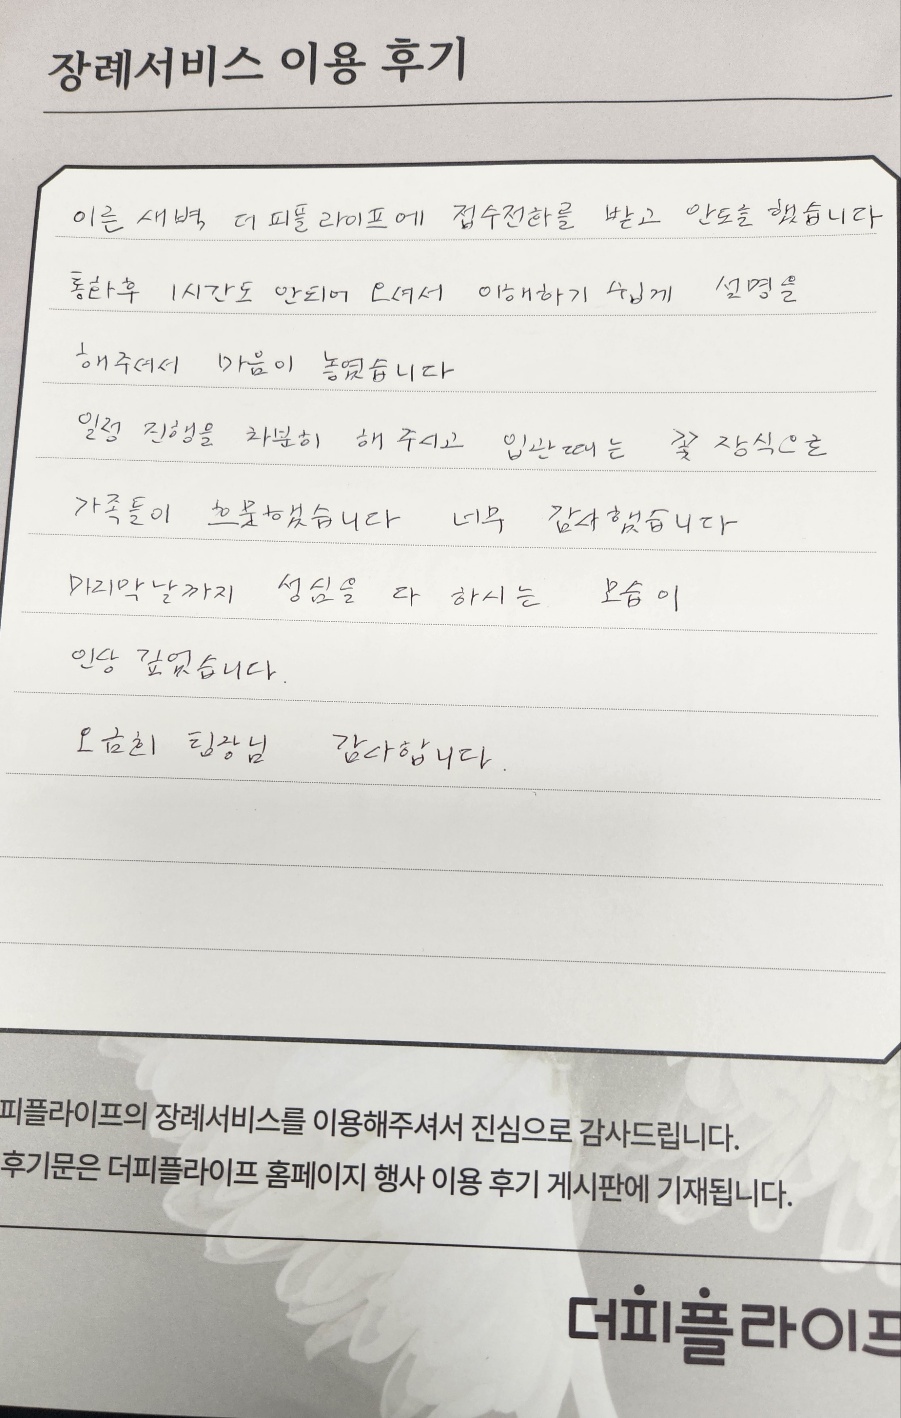 장례서비스 이용 후기
이른 새벽 더피플라이프에 접수전화를 받고 안도를 했습니다
통화후 1시간도 안되어 오셔서 이해하기 쉽게 설명을
해주셔서 마음이 놓였습니다
일정 진행을 차분히 해 주시고 입관때는 꽃 장식으로
가족들이 흐뭇했습니다 너무 감사했습니다
마지막날까지 성심을 다 하시는 모습이
인상 깊었습니다.
오금희 팀장님 감사합니다.
피플라이프의 장례서비스를 이용해주셔서 진심으로 감사드립니다.
후기문은 더피플라이프 홈페이지 행사 이용 후기 게시판에 기재됩니다.
더피플라이프